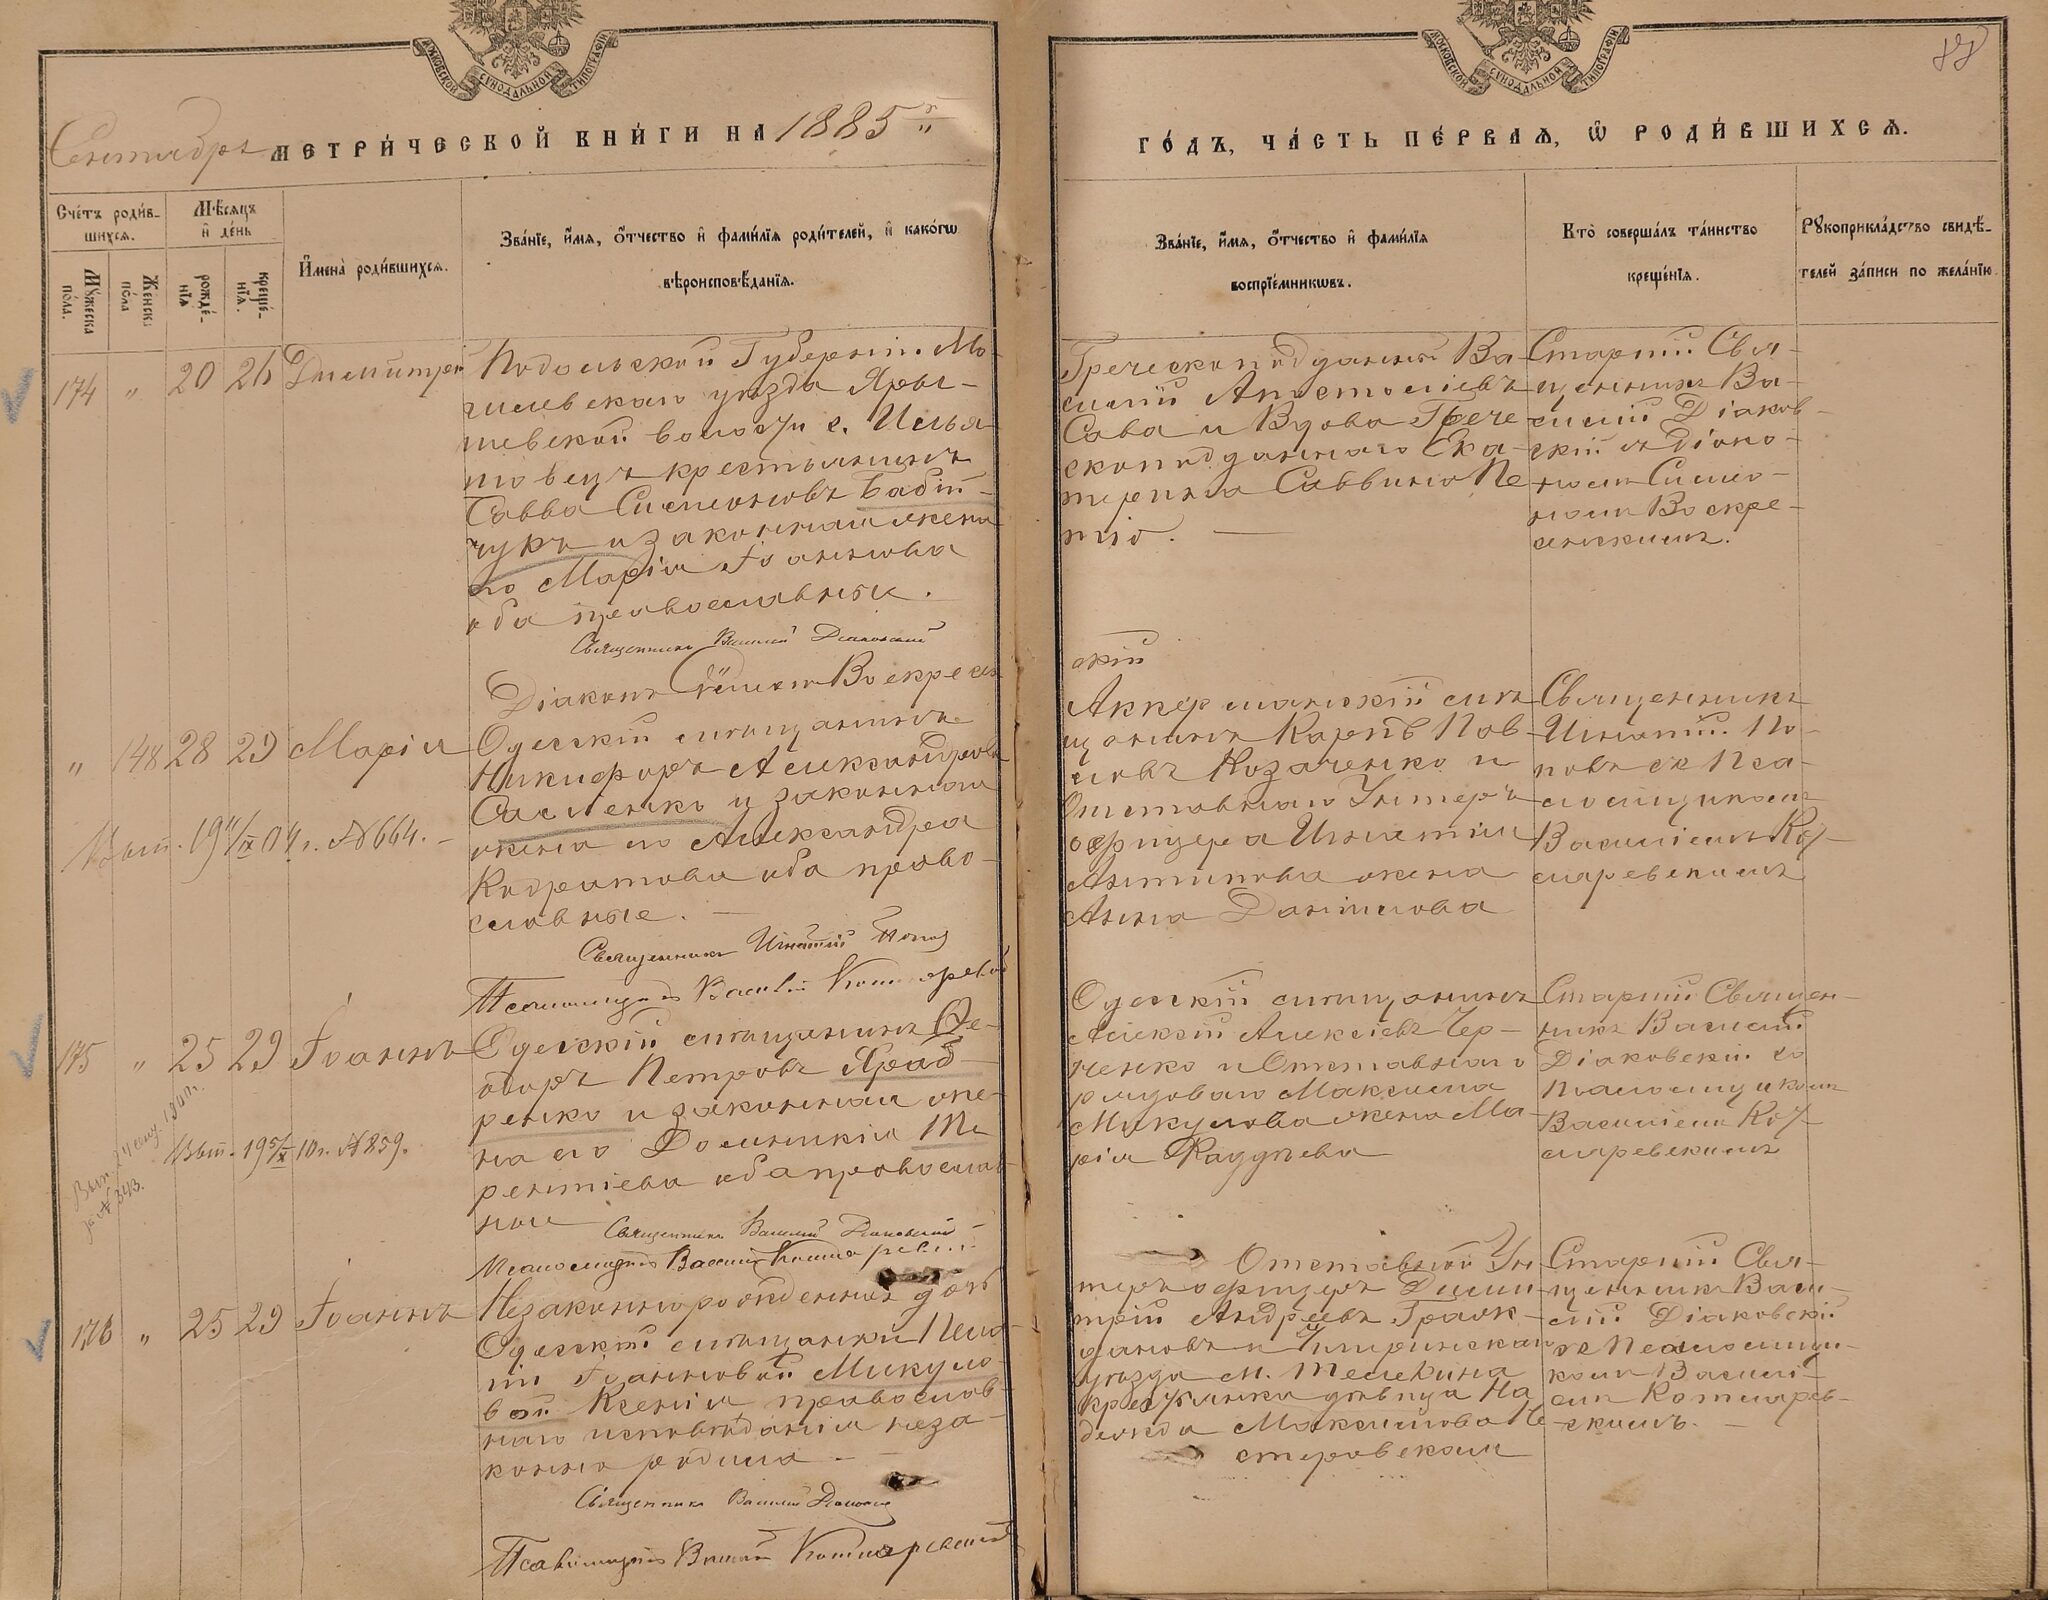 МОСКОВСКОЙ СУНОДАЛЬНОЙ ТИПОГРАФІИ
МОСКОВСКОЙ СУНОДАЛЬНОЙ ТИПОГРАФІИ
Сентябрь МЕТРИ́ЧЕСКОЙ КНИ́ГИ НА 1885
ГО́ДЪ, ЧА́СТЬ ПЕ́РВАѦ, Ѿ РОДИ́ВШИХСѦ.
Сче́тъ роди́в-
шихсѧ.
Мѣ́сѧцъ
и҆ де́нь
Мꙋ́жеска
по́ла.
Же́нска
по́ла
рожде́-
нїѧ
креще́-
нїѧ.
И҆мена̀ роди́вшихсѧ.
Зва́нїе, и҆́мѧ, ѻ҆́тчество и҆ фами́лїѧ роди́телей, и҆ како́гѡ
вѣроисповѣ́данїѧ.
Зва́нїе, и҆́мѧ, ѻ҆́тчество и҆ фами́лїѧ
воспрїе́мникѡвъ.
Кто̀ соверша́лъ та́инство
креще́нїѧ.
Рꙋкоприкла́дство свидѣ́-
телей за́писи по жела́нїю.
174 " 20 26 Димитрій
Подольской Губерніи Мо-
гилевскаго уѣзда Яры-
шевской волости с. Илья-
шовецъ крестьянинъ
Савва Симеоновъ Бабій-
чукъ и законная жена
его Марія Іоаннова
оба православные.
Священникъ Василій Діаковскій
Діаконъ Симеонъ Воскресен
скій
Греческоподданный Ва-
силій Апостоліевъ
Сава и Вдова Грече-
скоподданнаго Ека-
терина Саввина Пе
Старшій Свя-
щенникъ Ва-
силій Діаков-
скій съ Діако-
номъ Симео-
номъ Воскре-
сенскимъ.
" 148 28 29 Марія
Одесскій мѣщанинъ
Никифоръ Александровъ
и законная
жена его Александра
Кодратова оба право-
славные.
Священникъ Игнатій Попов
Псаломщикъ Василій Котляревскій
Выт. 19 04 г. № 664.
Аккерманскій мѣ-
щанинъ Карпъ Пав-
ловъ Козаченко и
Отставнаго Унтеръ
офицера Игнатія
Антипова жена
Анна Даніилова
Священникъ
Игнатій По-
повъ съ Пса-
ломщикомъ
Василіемъ Кот-
ляревскимъ
175 " 25 29 Іоаннъ
Одесскій мѣщанинъ Ѳе-
одоръ Петровъ
и законная же-
на его Домникія Те-
рентіева оба православ-
ные
Священникъ Василій Діаковскій
Псаломщикъ Василій Котляревскій
Выт. 19 10 г. № 859.
№ 343.
Одесскій мѣщанинъ
Алексій Алексіевъ Чер-
ненко и Отставнаго
рядоваго Максима
Микулова жена Ма-
рія Фаддѣева
Старшій Священ-
никъ Василій
Діаковскій со
Псаломщикомъ
Василіемъ Кот-
ляревскимъ
176 " 25 29 Іоаннъ
Незаконнорожденный дочь
Одесской мѣщанки Пела-
гіи Іоанновой Микуло-
вой Ксенія православ-
наго исповѣданія неза-
конно родила
Священникъ Василій Діаковск
Псаломщикъ Василій Котляревскій
Отставной Ун
теръ офицеръ Дими
трій Андреевъ Граж-
дановъ и Чигиринскаго
уѣзда м. Телепина
крестьянка дѣвица На
дежда Максимова Не
стеровская
Старшій Свя-
щенникъ Васи-
лій Діаковскій
съ Псаломщи-
комъ Василі-
емъ Котлярев-
скимъ.